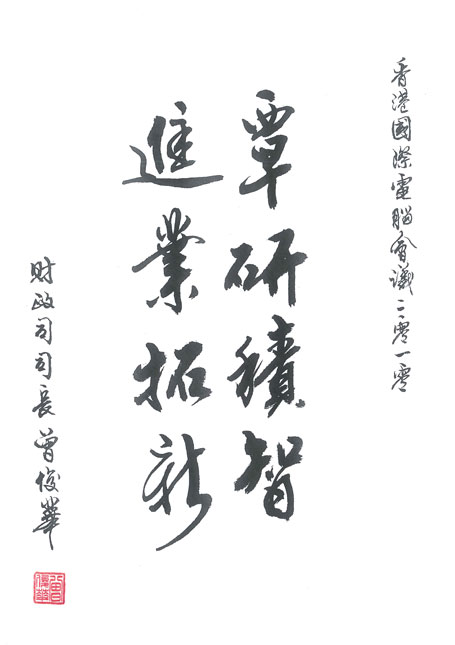 香港國際電腦會議二零一零
覃研積智
進業拓新
財政司司長曾俊華
曾俊華